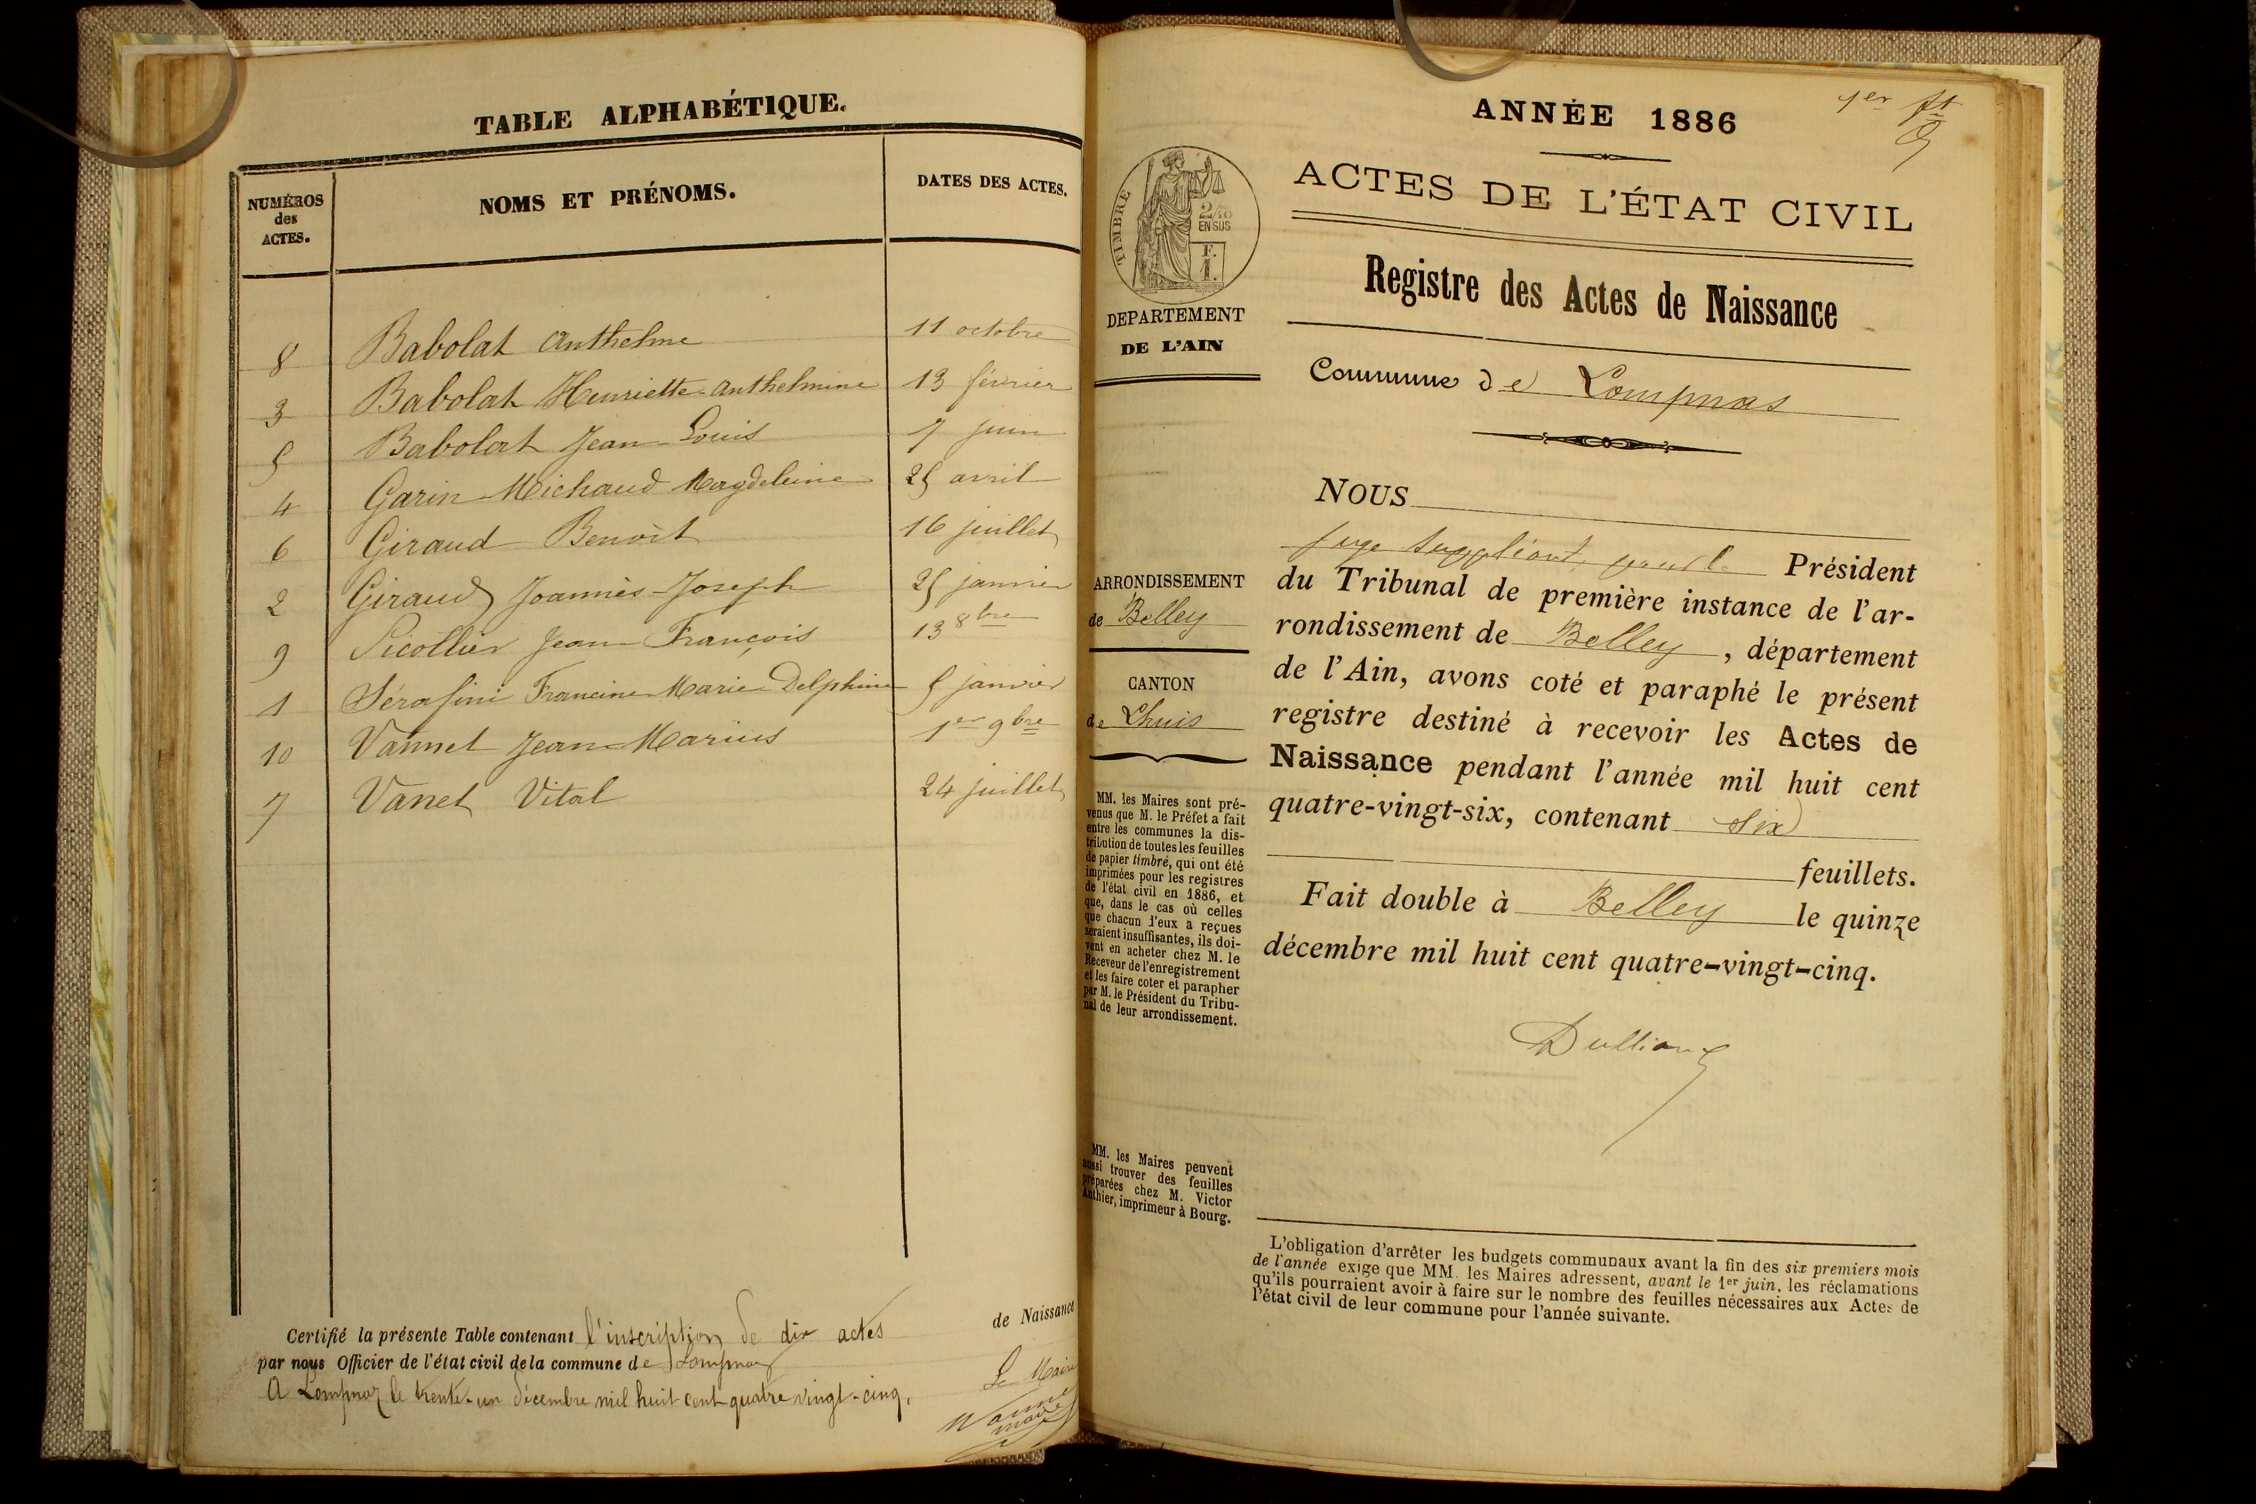 TABLE ALPHABÉTIQUE.
NUMÉROS des ACTES.
NOMS ET PRÉNOMS.
DATES DES ACTES.
8 Babolat Anthelme 11 octobre
3 Babolat Henriette Anthelmine 13 février
5 Babolat Jean-Louis 7 juin
4 Garin-Michaud Magdeleine 25 avril
6 Giraud Benoît 16 juillet
2 Giraud Joannès-Joseph 25 janvier
9 Sicollier Jean-François 13 8bre
1 Sérafini Francine-Marie-Delphine 5 janvier
10 Vannet Jean-Marius 1er 9bre
7 Vanet Vital 24 juillet
Certifié la présente Table contenant l'inscription de dix actes de Naissance
par nous Officier de l'état civil de la commune de Lompnaz
A Lompnaz le trente-un décembre mil huit cent quatre vingt-cinq.
Le Maire
1er ft
ANNÉE 1886
ACTES DE L'ÉTAT CIVIL
Registre des Actes de Naissance
Commune de Lompnas
TIMBRE
2/10
EN SUS
F.
1.
DEPARTEMENT
DE L'AIN
ARRONDISSEMENT
de Belley
CANTON
de Lhuis
MM. les Maires sont pré-
venus que M. le Préfet a fait
entre les communes la dis-
tribution de toutes les feuilles
de papier timbré, qui ont été
imprimées pour les registres
de l'état civil en 1886, et
que, dans le cas où celles
que chacun d'eux a reçues
seraient insuffisantes, ils doi-
vent en acheter chez M. le
Receveur de l'enregistrement
et les faire coter et parapher
par M. le Président du Tribu-
nal de leur arrondissement.
MM. les Maires peuvent
aussi trouver des feuilles
préparées chez M. Victor
Authier, imprimeur à Bourg.
NOUS
juge suppléant, pour le Président
du Tribunal de première instance de l'ar-
rondissement de Belley, département
de l'Ain, avons coté et paraphé le présent
registre destiné à recevoir les Actes de
Naissance pendant l'année mil huit cent
quatre-vingt-six, contenant six
feuillets.
Fait double à Belley le quinze
décembre mil huit cent quatre-vingt-cinq.
L'obligation d'arrêter les budgets communaux avant la fin des six premiers mois
de l'année exige que MM. les Maires adressent, avant le 1er juin, les réclamations
qu'ils pourraient avoir à faire sur le nombre des feuilles nécessaires aux Actes de
l'état civil de leur commune pour l'année suivante.